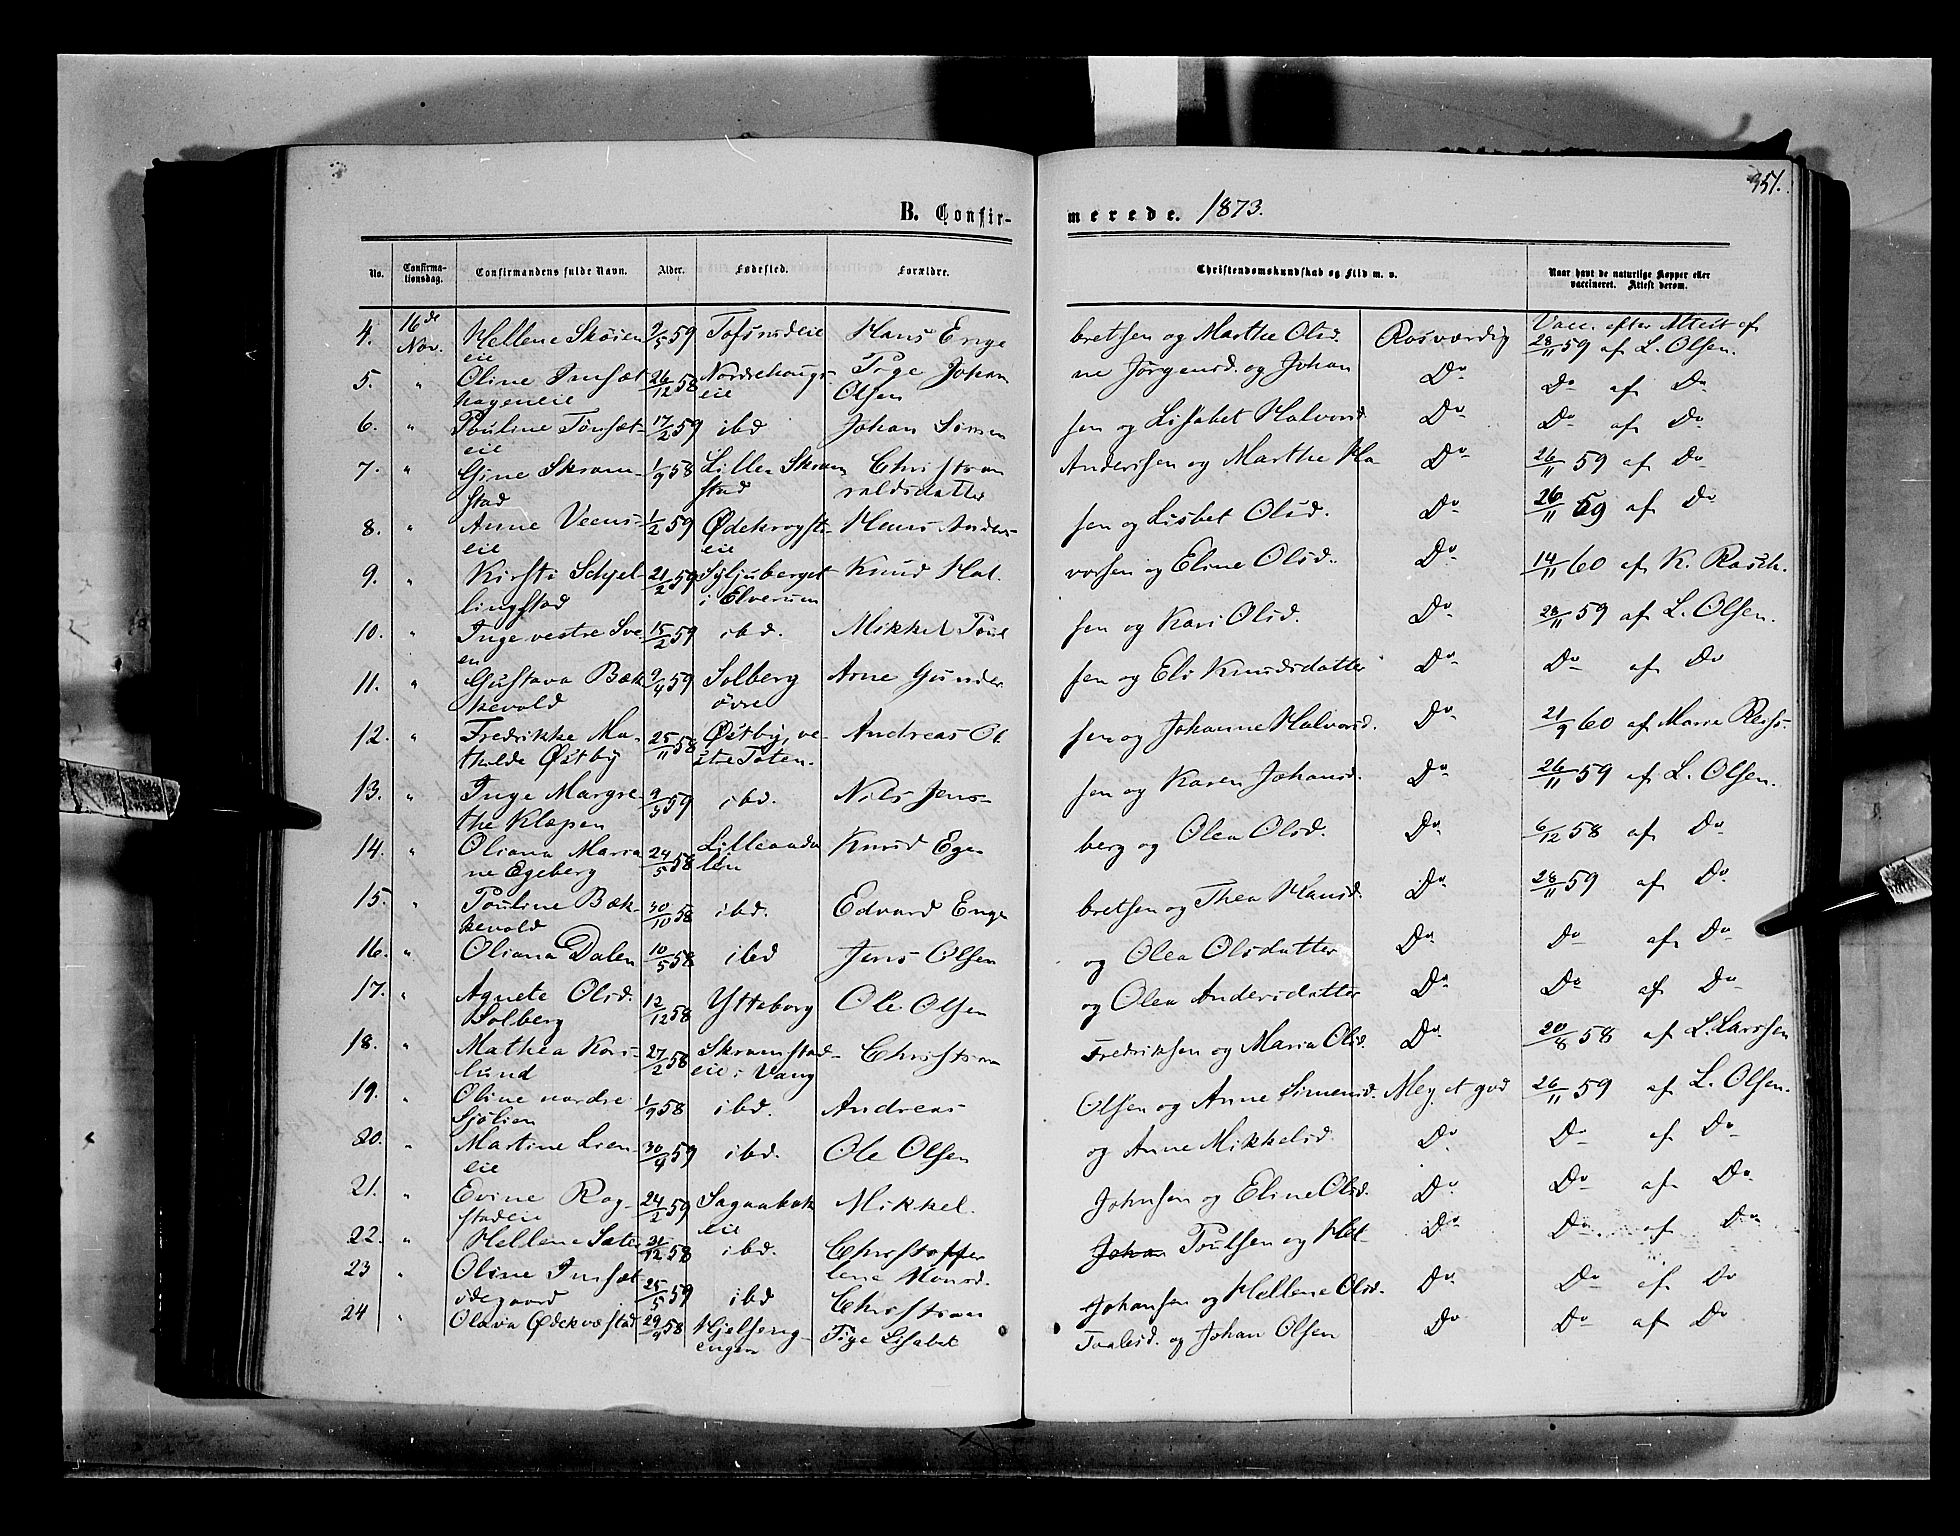 351.
B. Confirmerede. 1873.
No. Confirmationsdag. Confirmandens fulde Navn. Alder. Fødested. Forældre. Christendomskundskab og Flid m. v. Naar havt de naturlige Kopper eller vaccineret. Attest derom.
4. 16de Nov. Hellene Skøien 2/5 59 Hans Enge bretsen og Marthe Olsd. Rosværdig Vacc. efter Attest af
eie 28/11 59 af L. Olsen.
5. " Oline Imsæt 26/12 58 Nordrehougs- Pige Johan ne Jørgensd. og Johan Do Do af Do
hageneie eie Olsen
6. " Pouline Tømsæt- 17/2 59 ibd Johan Simen sen og Lisabet Halvorsd. Do Do af Do
eie
7. " Gine Skram- 1/9 58 Lillen Skram Christian Andersen og Marthe Ha- Do 26/11 59 af Do
stad stad raldsdatter
8. " Anne Veens- 1/2 59 Hans Anders- sen og Lisbet Olsd. Do 26/11 59 af Do
eie eie
9. " Kirsti Schjel- 21/2 59 Syljuberget Knud Hal- vorsen og Eline Olsd. Do 14/11 60 af K. Rasch.
lingstad i Elverum
10. " Inge vestre Sve- 15/2 59 ibd. Mikkel Poul sen og Kari Olsd. Do 28/11 59 af L. Olsen.
en
11. " Gustava Bæk 9/4 59 Solberg Arne Gunder sen og Eli Knudsdatter Do Do af Do
kevold øvre
12. " Fredrikke Ma- 25/11 58 Østby, ve- Andreas Ol sen og Johanne Halvorsd. Do 21/9 60 af Maria
thilde Østby stre Toten.
13. " Inge Margre- 9/3 59 ibd. Nils Jens- sen og Karen Johansd. Do 26/11 59 af L. Olsen.
the Klæpen
14. " Oliana Maria 24/5 58 Lilleaada Knud Ege- berg og Olea Olsd. Do 6/12 58 af Do
ne Egeberg len
15. " Pouline Bæk- 30/10 58 ibd. Edvard Enge bretsen og Thea Hansd. Do 28/11 59 af Do
kevold
16. " Oliana Dalen 10/5 58 ibd Jens Olsen og Olea Olsdatter Do Do af Do
17. " Agnete Olsd. 12/12 58 Ytteborg Ole Olsen og Olea Andersdatter Do Do af Do
Solberg
18. " Mathea Kors- 27/2 58 Skramstad- Christian Fredriksen og Maria Olsd. Do 20/8 58 af L. Larssen
lund eie i Vang
19. " Oline nordre 1/9 58 ibd. Andreas Olsen og Anne Simensd. Meget god 26/11 59 af L. Olsen.
Sjølien
20. " Martine Lien- 30/4 59 ibd. Ole Olsen og Anne Mikkelsd. Do Do af Do
eie
21. " Evine Rog- 24/2 59 Sagaabak Mikkel. Johnsen og Eline Olsd. Do Do af Do
stadeie eie
22. " Hellene Sæter 21/12 58 ibd. Christoffer Johan Poulsen og Hel- Do Do af Do
23 " Oline Imsæt 25/5 59 ibd lene Monsd. Johansen og Hellene Olsd. Do Do af Do
ødegaard Christian
24 " Olava Ødekvæstad 29/9 58 Hjelseng- Pige Lisabet Taalesd. og Johan Olsen Do Do af Do
engen